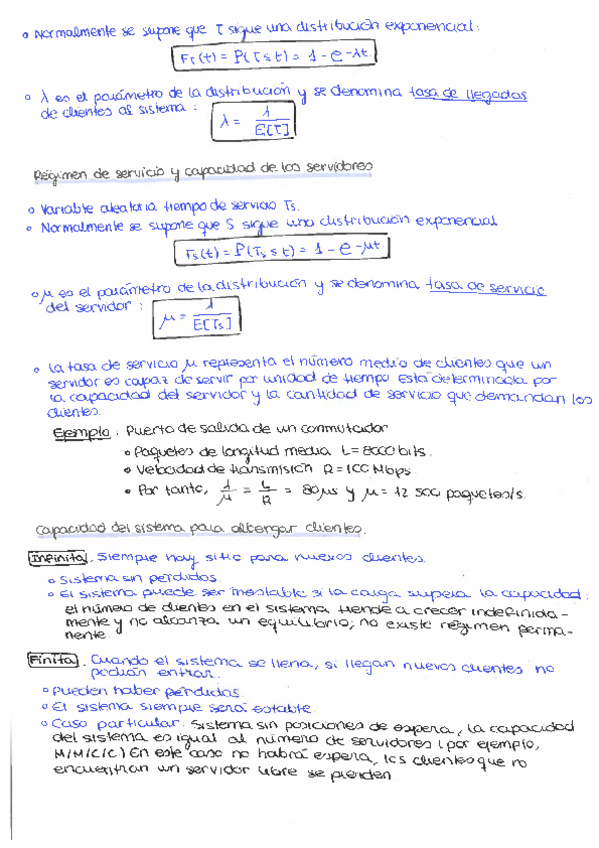 o Normalmente se supone que τ sigue una distribución exponencial:
Fτ(t) = P(τ ≤ t) = 1 - e^-λt
o λ es el parámetro de la distribución y se denomina tasa de llegadas
de clientes al sistema :
λ = 1/E[τ]
Régimen de servicio y capacidad de los servidores
o Variable aleatoria tiempo de servicio Ts.
o Normalmente se supone que S sigue una distribución exponencial
Fs(t) = P(Ts ≤ t) = 1 - e^-μt
o μ es el parámetro de la distribución y se denomina tasa de servicio
del servidor : μ = 1/E[Ts]
o La tasa de servicio μ representa el número medio de clientes que un
servidor es capaz de servir por unidad de tiempo Está determinada por
la capacidad del servidor y la cantidad de servicio que demandan los
clientes.
Ejemplo : Puerto de salida de un conmutador
• Paquetes de longitud media L = 8000 bits.
• Velocidad de transmisión R = 100 Mbps
• Por tanto, 1/μ = L/R = 80 μs y μ = 12 500 paquetes/s.
Capacidad del sistema para albergar clientes.
Infinita. Siempre hay sitio para nuevos clientes.
o Sistema sin pérdidas.
o El sistema puede ser inestable si la carga supera la capacidad:
el número de clientes en el sistema tiende a crecer indefinida-
mente y no alcanza un equilibrio; no existe régimen perma-
nente.
Finita. Cuando el sistema se llena, si llegan nuevos clientes no
podrán entrar.
o Pueden haber pérdidas.
o El sistema siempre será estable
o Caso particular: Sistema sin posiciones de espera, la capacidad
del sistema es igual al número de servidores (por ejemplo,
M/M/C/C) En este caso no habrá espera, los clientes que no
encuentran un servidor libre se pierden